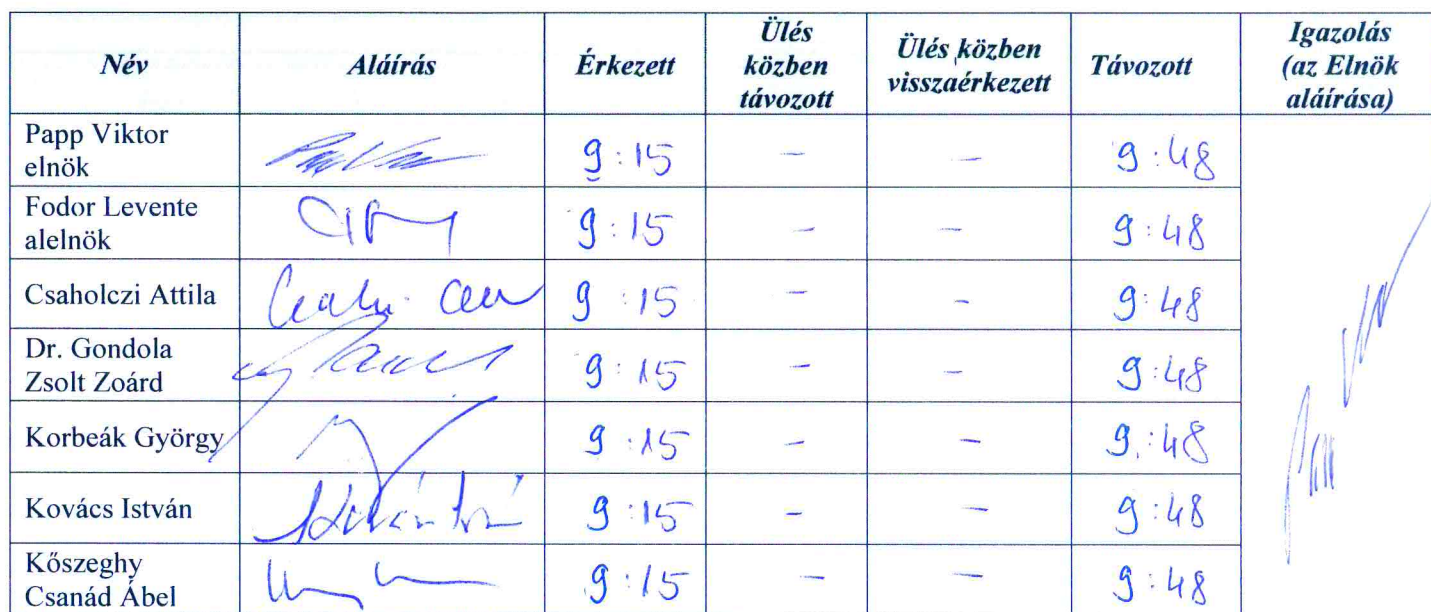 Név Aláírás Érkezett Ülés közben távozott Ülés közben visszaérkezett Távozott Igazolás (az Elnök aláírása)
Papp Viktor elnök 9:15 – – 9:48
Fodor Levente alelnök 9:15 – – 9:48
Csaholczi Attila 9:15 – – 9:48
Dr. Gondola Zsolt Zoárd 9:15 – – 9:48
Korbeák György 9:15 – – 9:48
Kovács István 9:15 – – 9:48
Kőszeghy Csanád Ábel 9:15 – – 9:48